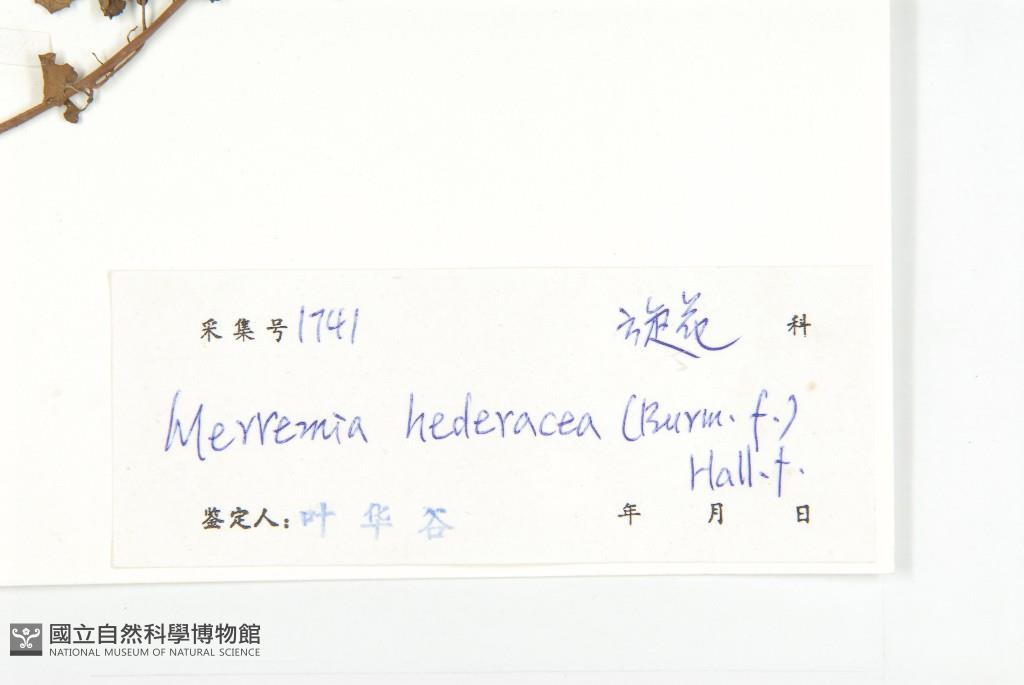 采集号 1741 旋花 科
Merremia hederacea (Burm. f.)
Hall. f.
鉴定人: 叶华谷 年 月 日
國立自然科學博物館
NATIONAL MUSEUM OF NATURAL SCIENCE